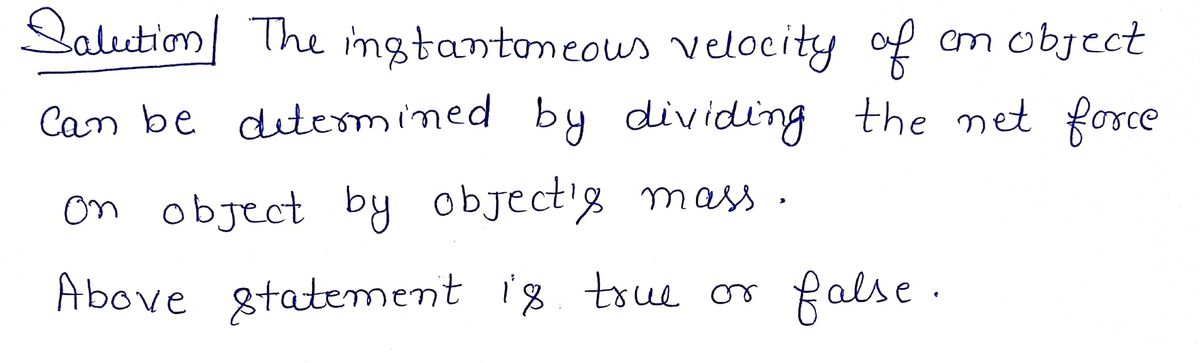 Solution| The instantaneous velocity of an object
can be determined by dividing the net force
on object by object's mass.
Above statement is true or false.